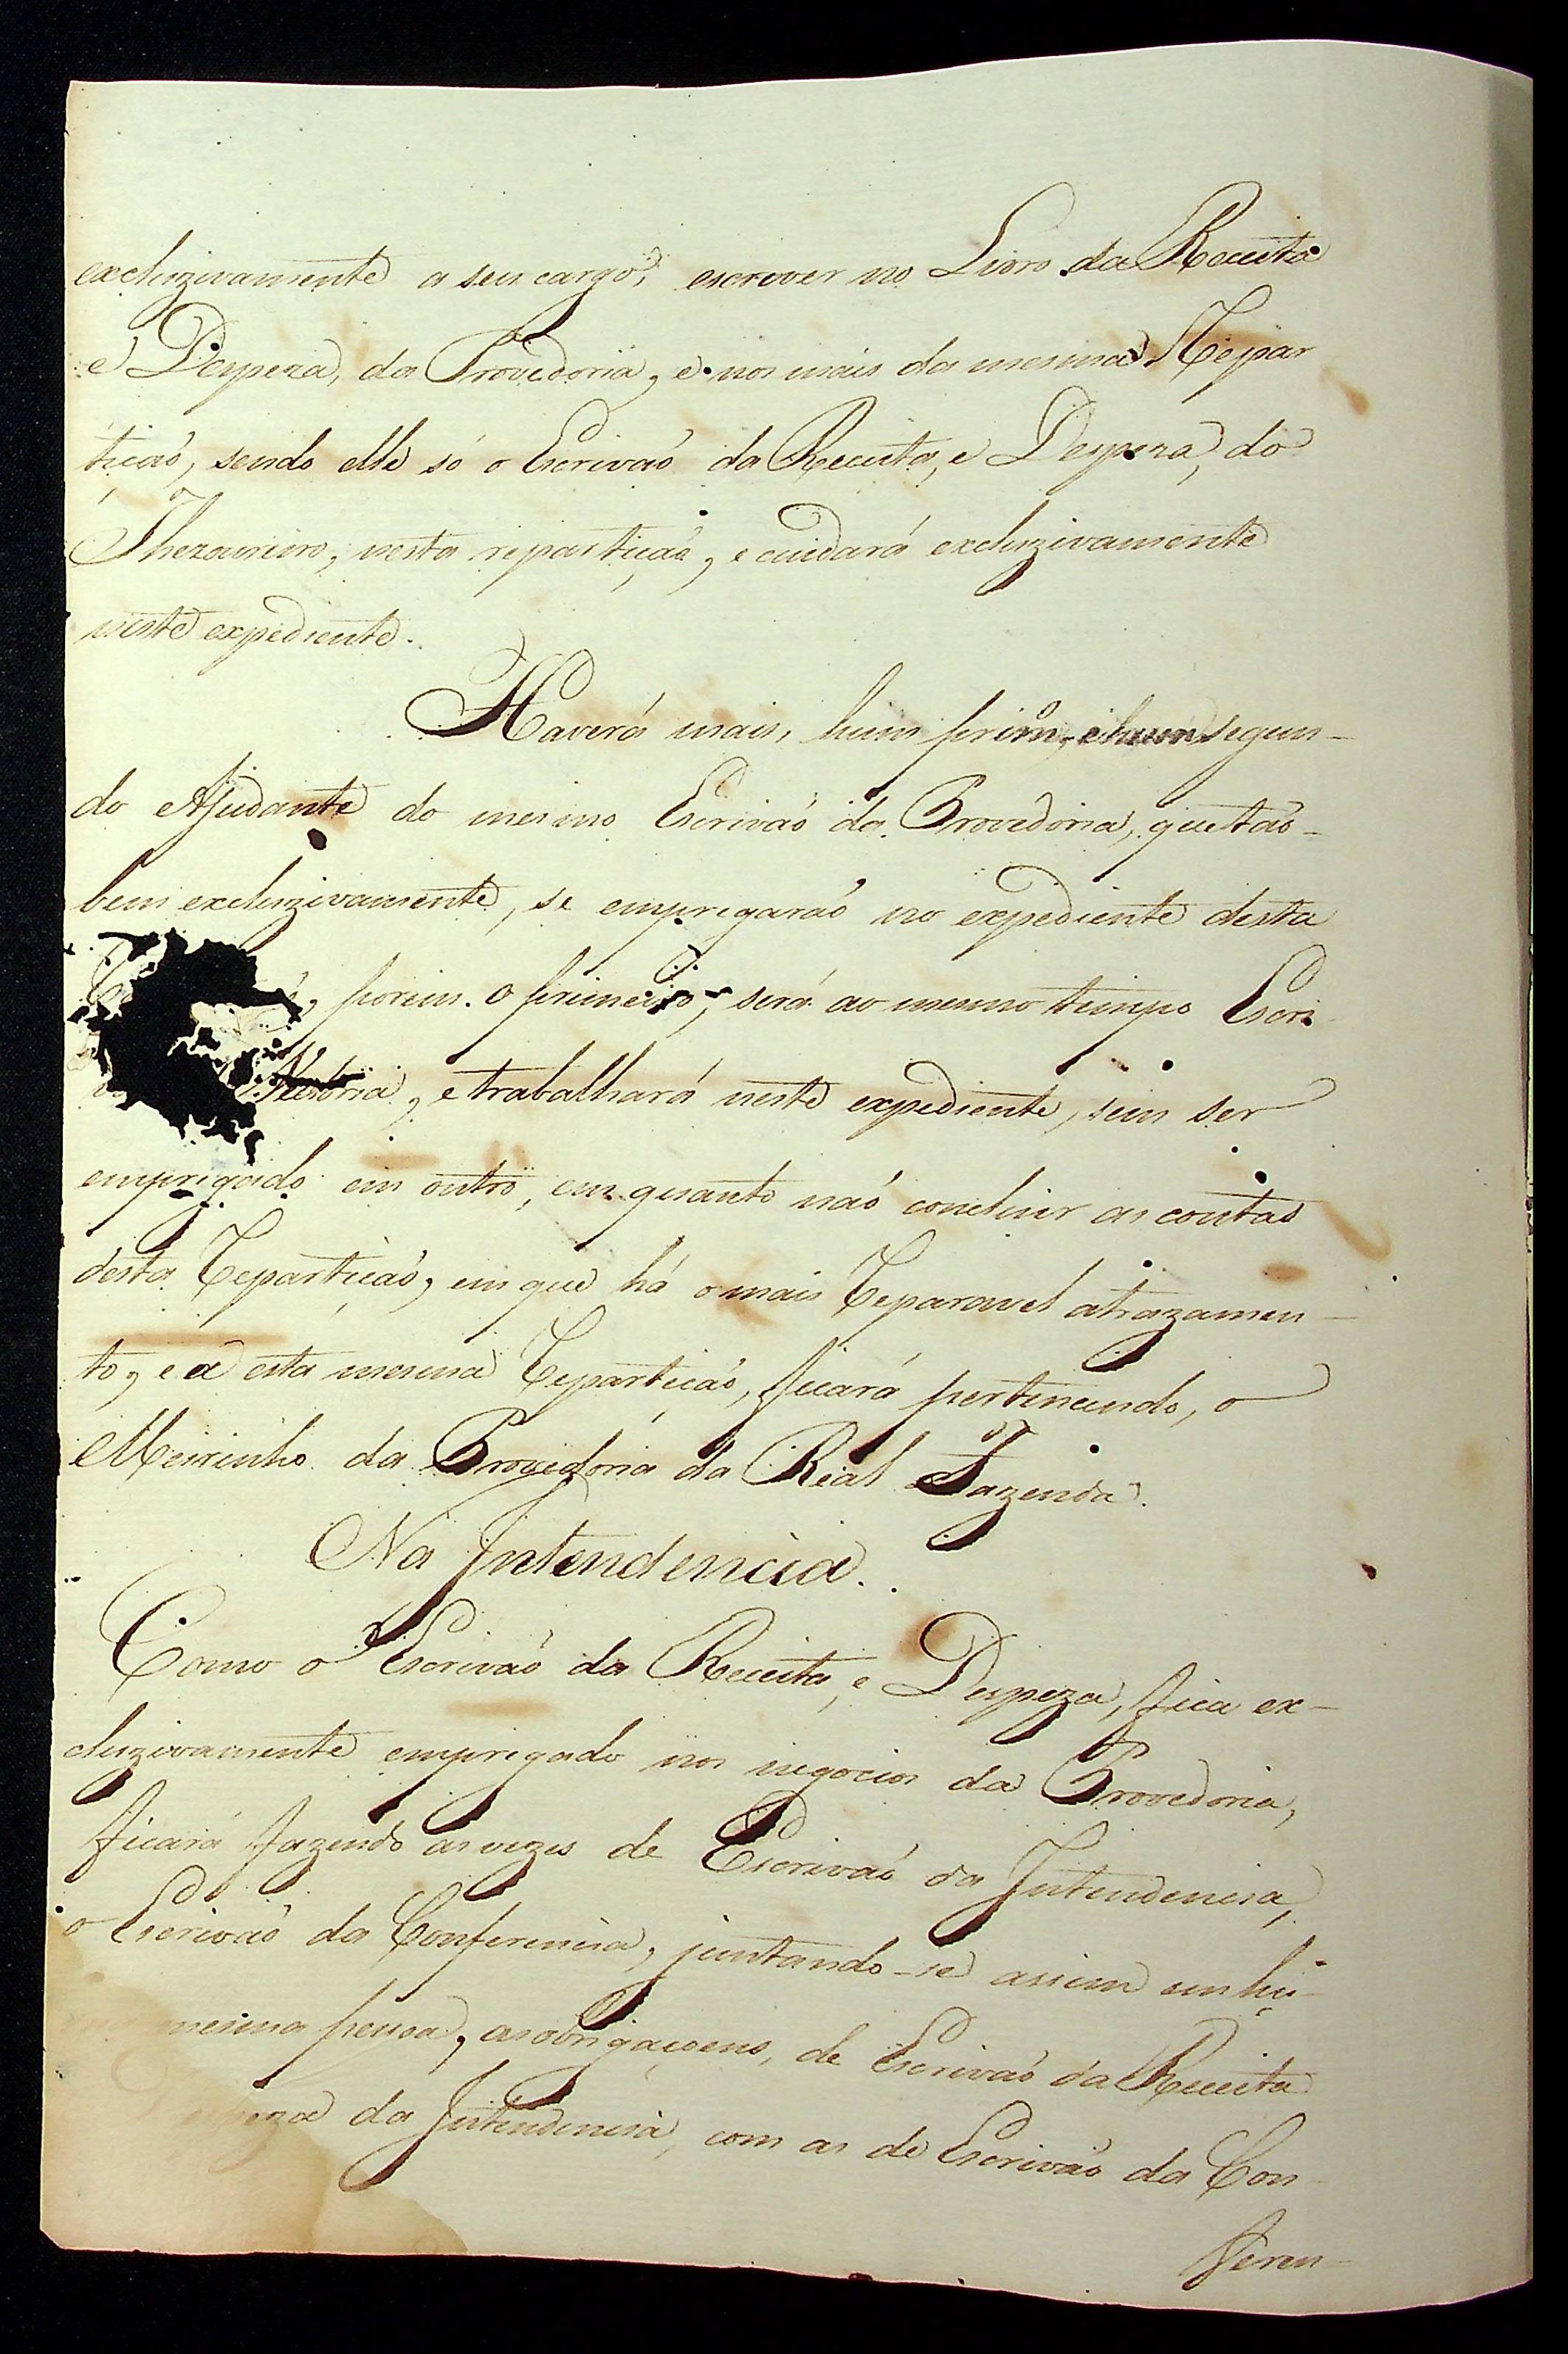 excluzivamente a seu cargo, escrever no Livro da Receita
e Despeza, da Provedoria, e nos mais da mesma Repar
tiçaõ, sendo elle só o Escrivaõ da Receita, e Despeza, do
Thezoureiro, nesta repartiçaõ, e cuidará excluzivamente
neste expediente.
Haverá mais, hum primº, e hum segun-
do Ajudante do mesmo Escrivaõ da Provedoria, que taõ-
bem excluzivamente, se empregaraõ no expediente desta
porem o primeiro, será ao mesmo tempo Escri
e trabalhará neste expediente, sem ser
empregado em outro, em quanto naõ concluir as contas
desta Repartiçaõ, em que há o mais reparavel atrazamen-
to, e a esta mesma Repartiçaõ, ficará pertencendo, o
Meirinho da Provedoria da Real Fazenda.
Na Intendencia.
Como o Escrivaõ da Receita, e Despeza, fica ex-
cluzivamente empregado nos negocios da Provedoria,
ficará fazendo as vezes de Escrivaõ da Intendencia,
o Escrivaõ da Conferencia, juntando-se assim em hu-
mesma pessoa, as obrigaçoens, de Escrivaõ da Receita
da Intendencia, com as de Escrivaõ da Con-
feren-